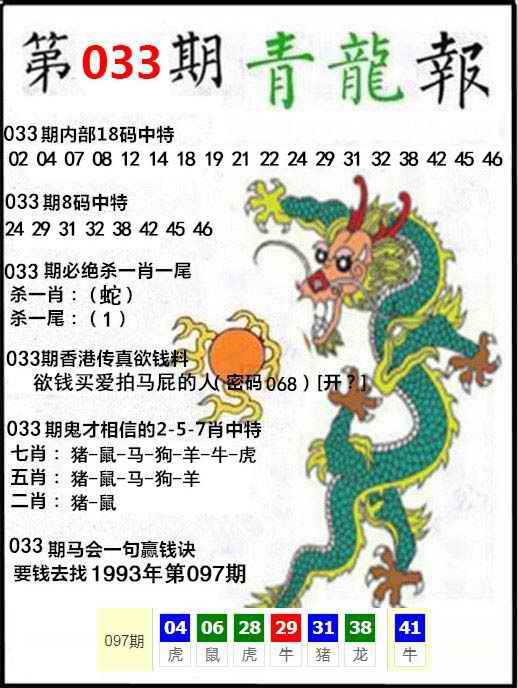 第033期青龍報
033期内部18码中特
02 04 07 08 12 14 18 19 21 22 24 29 31 32 38 42 45 46
033期8码中特
24 29 31 32 38 42 45 46
033 期必绝杀一肖一尾
杀一肖：（蛇）
杀一尾：（1）
033期香港传真欲钱料
欲钱买爱拍马屁的人（密码068）[开？]
033期鬼才相信的2-5-7肖中特
七肖：猪-鼠-马-狗-羊-牛-虎
五肖：猪-鼠-马-狗-羊
二肖：猪-鼠
033 期马会一句赢钱诀
要钱去找1993年第097期
097期 04 06 28 29 31 38 41
虎 鼠 虎 牛 猪 龙 牛